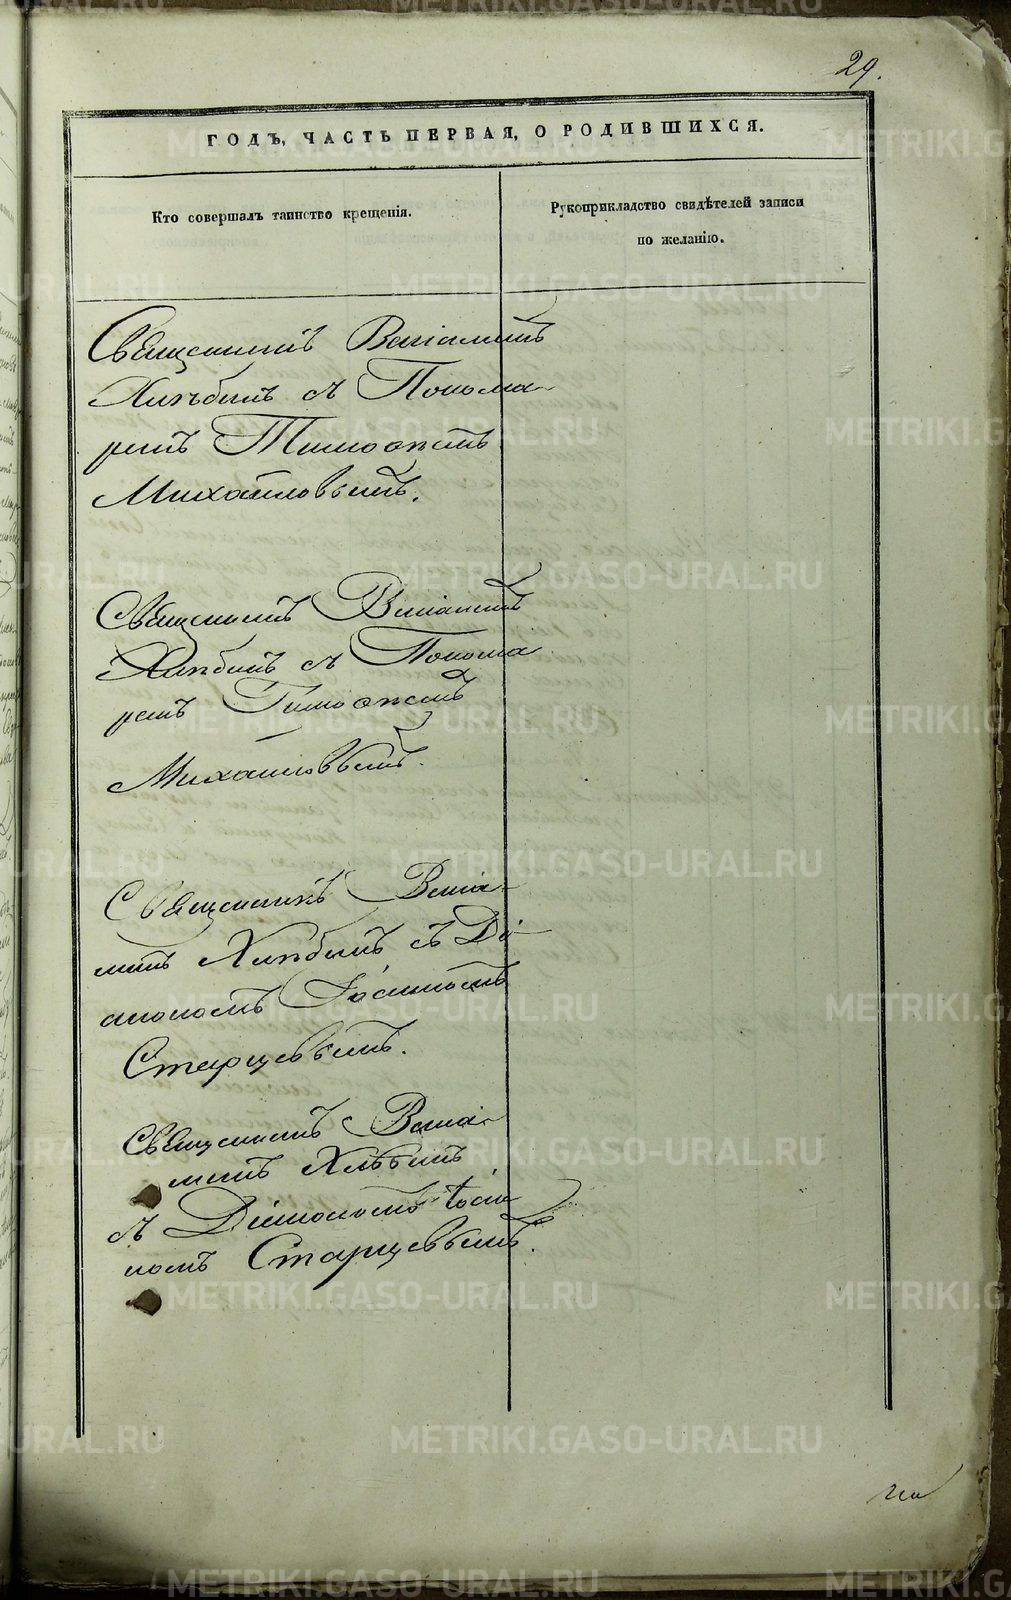 29.
ГОДЪ, ЧАСТЬ ПЕРВАЯ, О РОДИВШИХСЯ.
Кто совершалъ таинство крещенія.
Рукоприкладство свидѣтелей записи
по желанію.
Священникъ Веніаминъ
Хлѣбинъ съ Понома-
ремъ Тимоѳеемъ
Михайловымъ.
Священникъ Веніаминъ
Хлѣбинъ съ Понома
ремъ Тимоѳеемъ
Михайловымъ.
Священникъ Веніа-
минъ Хлѣбинъ съ Ді-
акономъ Іоанномъ
Старцевымъ.
Священникъ Веніа-
минъ Хлѣбинъ
съ Діакономъ Іоан
номъ Старцевымъ.
METRIKI.GASO-URAL.RU